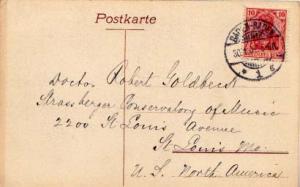 Postkarte
10 10
Doctor Robert Goldbeck
Strassberger Conservatory of Music
2200 St Louis Avenue
St Louis Mo.
U.S. North America